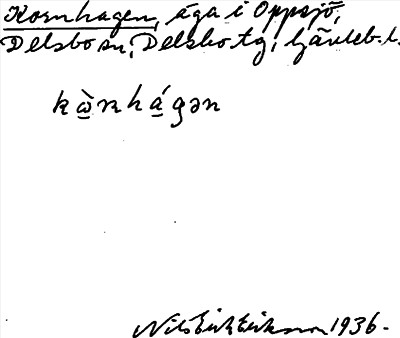 Kornhagen, äga i Oppsjö,
Delsbo sn, Delsbo tg, Gävleb. l.
kὼ̱rnhá̱gən
Nils Erik Eriksson 1936.